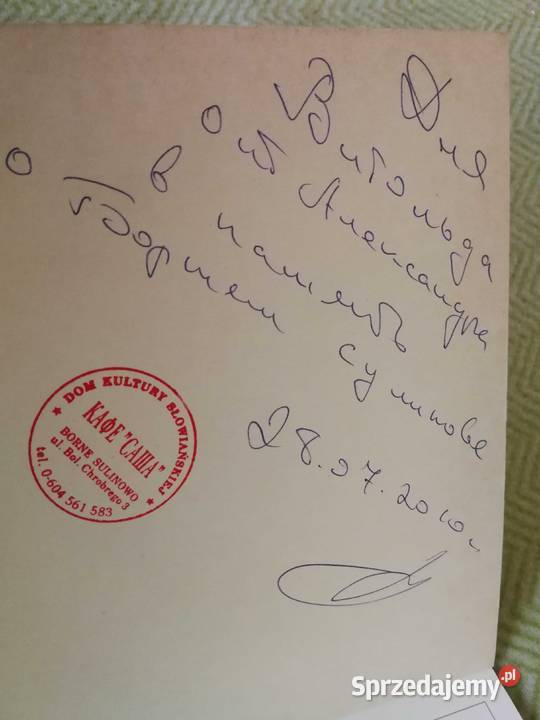 Для
Витольда
от Александра
в память
о Борнем сулинове
28.07.2010г.
★ DOM KULTURY SŁOWIAŃSKIEJ ★
КАФЕ "САША"
BORNE SULINOWO
ul. Bol. Chrobrego 3
tel. 0-604 561 583
Sprzedajemy.pl